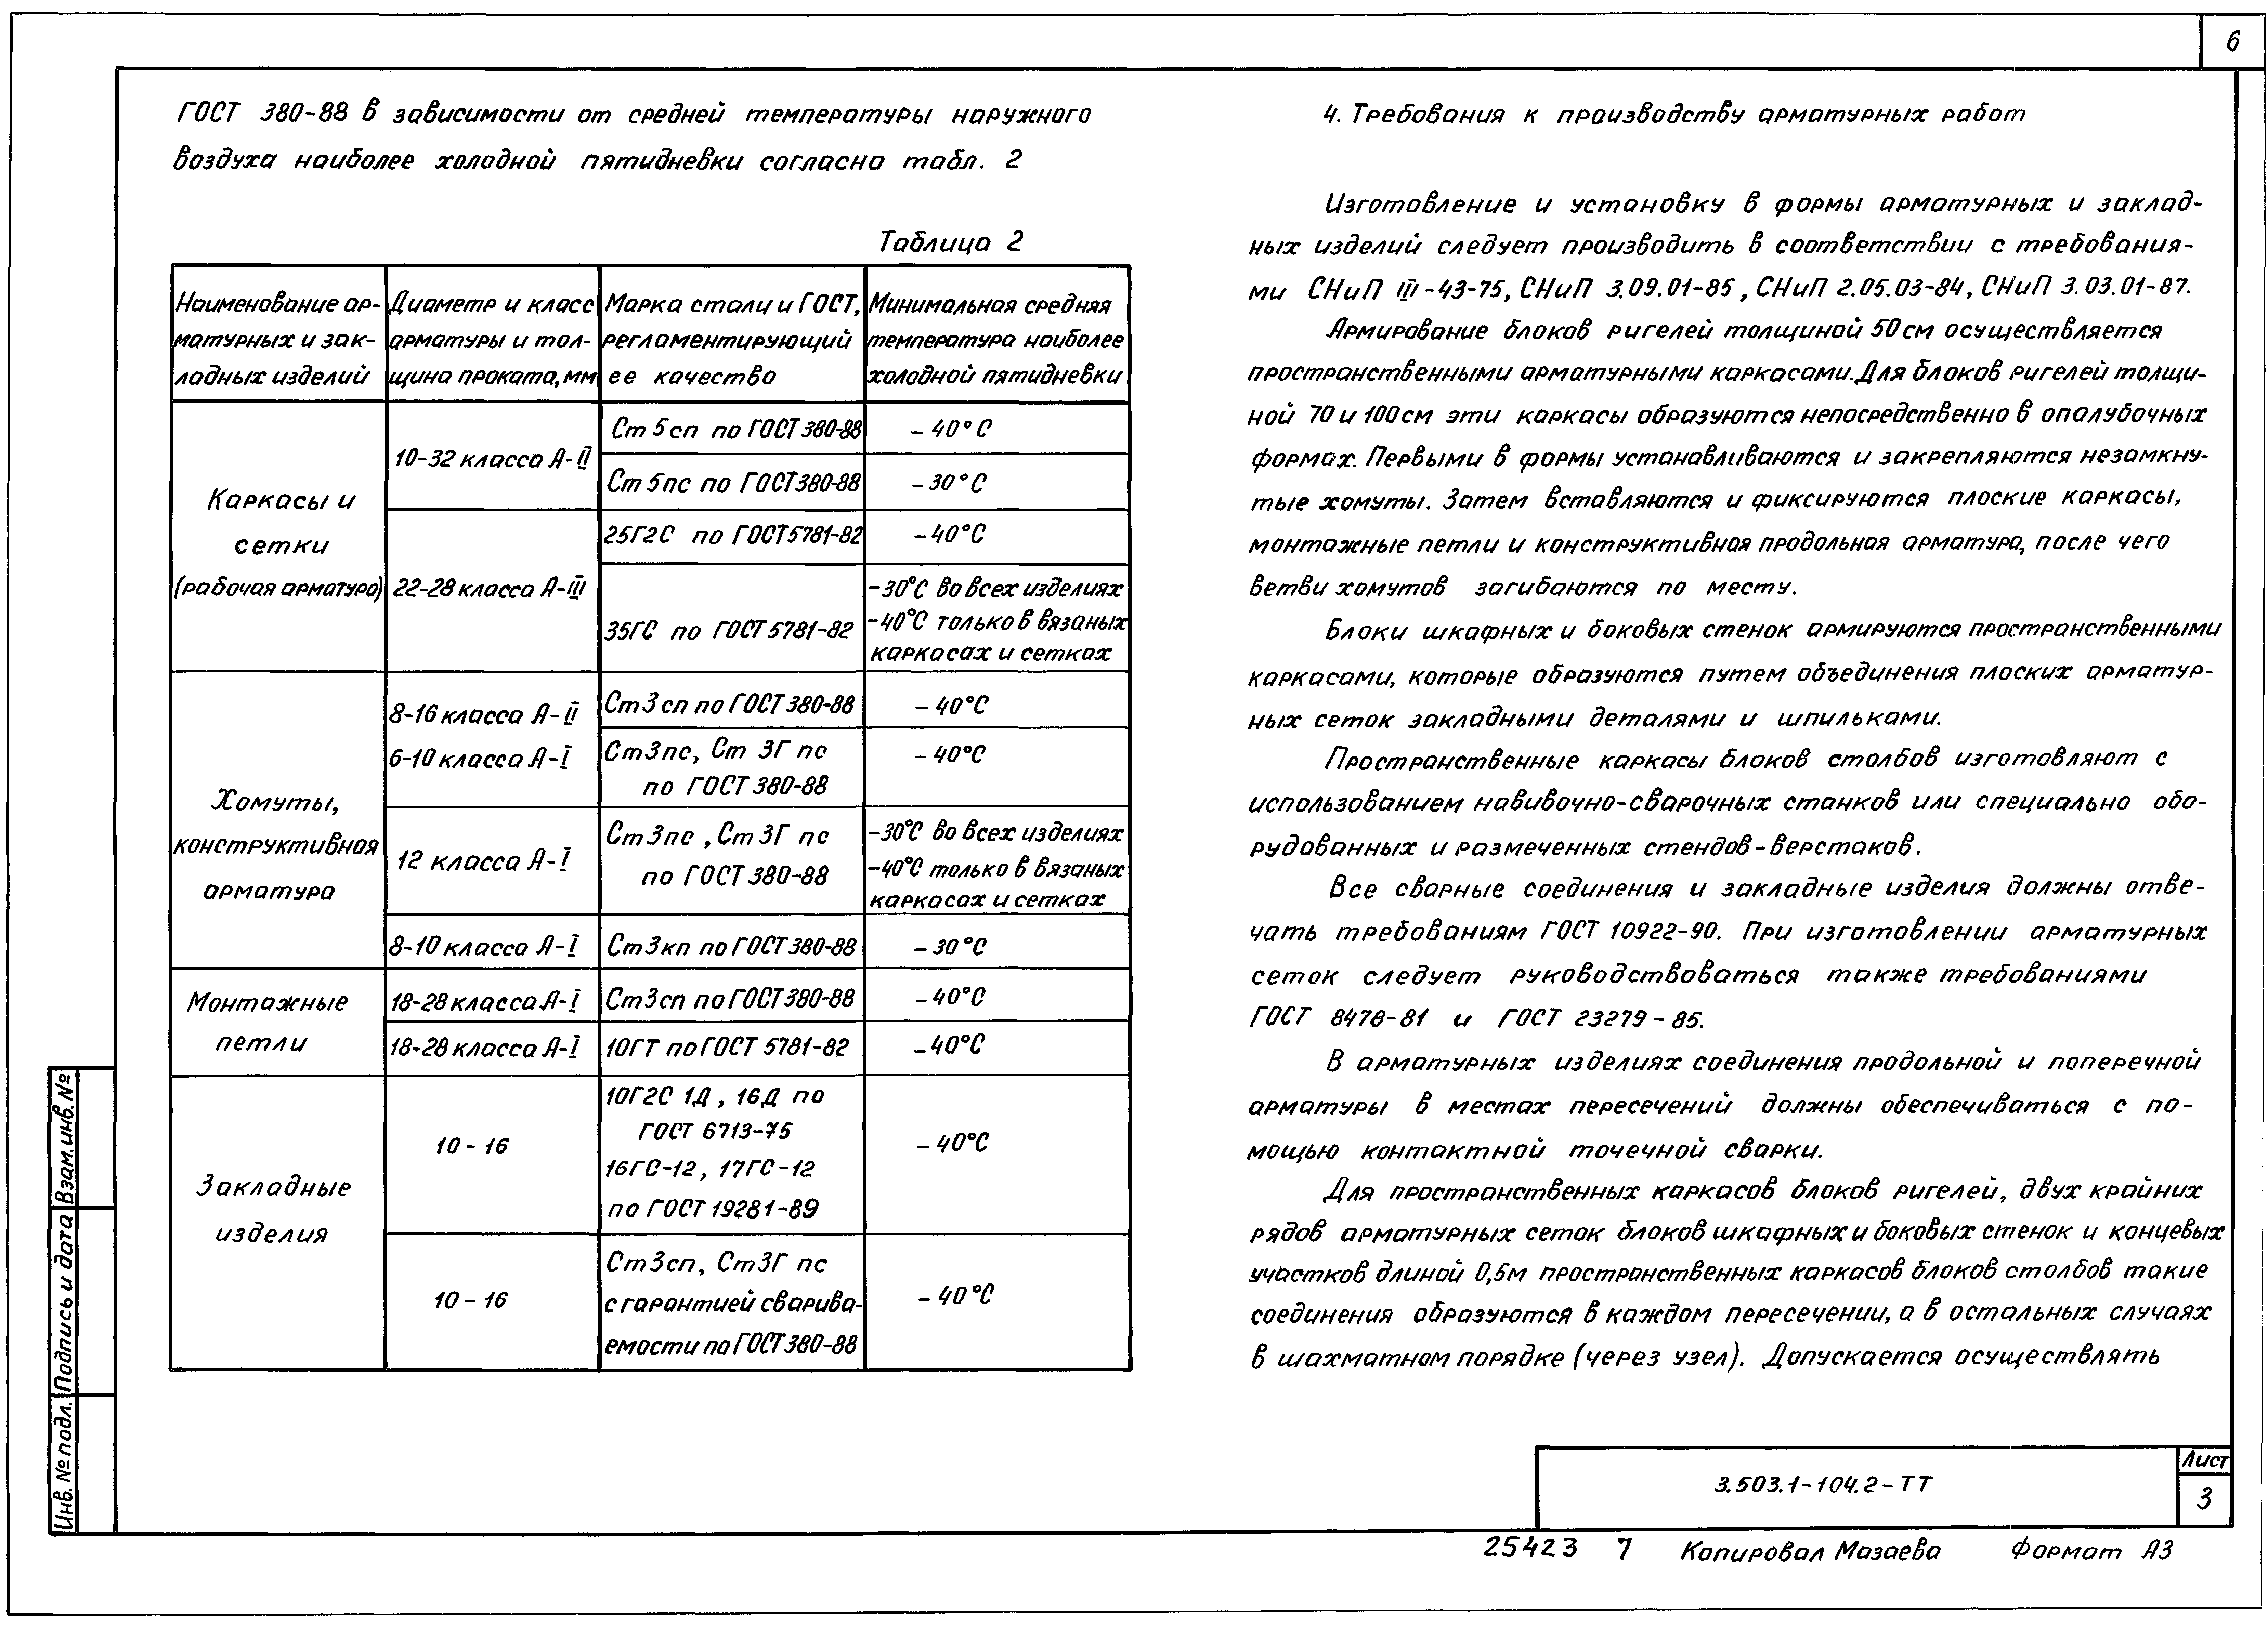 6
ГОСТ 380-88 в зависимости от средней температуры наружного
воздуха наиболее холодной пятидневки согласно табл. 2
Таблица 2
Наименование ар-
матурных и зак-
ладных изделий
Диаметр и класс
арматуры и тол-
щина проката, мм
Марка стали и ГОСТ,
регламентирующий
ее качество
Минимальная средняя
температура наиболее
холодной пятидневки
Каркасы и
сетки
(рабочая арматура)
10-32 класса А-II
Ст 5сп по ГОСТ 380-88
-40°С
Ст 5пс по ГОСТ 380-88
-30°С
22-28 класса А-III
25Г2С по ГОСТ 5781-82
-40°С
35ГС по ГОСТ 5781-82
-30°С во всех изделиях
-40°С только в вязаных
каркасах и сетках
Хомуты,
конструктивная
арматура
8-16 класса А-II
6-10 класса А-I
Ст3сп по ГОСТ 380-88
-40°С
Ст3пс, Ст 3Г пс
по ГОСТ 380-88
-40°С
12 класса А-I
Ст3пс, Ст 3Г пс
по ГОСТ 380-88
-30°С во всех изделиях
-40°С только в вязаных
каркасах и сетках
8-10 класса А-I
Ст3кп по ГОСТ 380-88
-30°С
Монтажные
петли
18-28 класса А-I
Ст3сп по ГОСТ 380-88
-40°С
18-28 класса А-I
10ГТ по ГОСТ 5781-82
-40°С
Закладные
изделия
10-16
10Г2С 1Д, 16Д по
ГОСТ 6713-75
16ГС-12, 17ГС-12
по ГОСТ 19281-89
-40°С
10-16
Ст3сп, Ст3Г пс
с гарантией сварива-
емости по ГОСТ 380-88
-40°С
4. Требования к производству арматурных работ
Изготовление и установку в формы арматурных и заклад-
ных изделий следует производить в соответствии с требования-
ми СНиП III-43-75, СНиП 3.09.01-85, СНиП 2.05.03-84, СНиП 3.03.01-87.
Армирование блоков ригелей толщиной 50см осуществляется
пространственными арматурными каркасами. Для блоков ригелей толщи-
ной 70 и 100см эти каркасы образуются непосредственно в опалубочных
формах. Первыми в формы устанавливаются и закрепляются незамкну-
тые хомуты. Затем вставляются и фиксируются плоские каркасы,
монтажные петли и конструктивная продольная арматура, после чего
ветви хомутов загибаются по месту.
Блоки шкафных и боковых стенок армируются пространственными
каркасами, которые образуются путем объединения плоских арматур-
ных сеток закладными деталями и шпильками.
Пространственные каркасы блоков столбов изготовляют с
использованием навивочно-сварочных станков или специально обо-
рудованных и размеченных стендов-верстаков.
Все сварные соединения и закладные изделия должны отве-
чать требованиям ГОСТ 10922-90. При изготовлении арматурных
сеток следует руководствоваться также требованиями
ГОСТ 8478-81 и ГОСТ 23279-85.
В арматурных изделиях соединения продольной и поперечной
арматуры в местах пересечений должны обеспечиваться с по-
мощью контактной точечной сварки.
Для пространственных каркасов блоков ригелей, двух крайних
рядов арматурных сеток блоков шкафных и боковых стенок и концевых
участков длиной 0,5м пространственных каркасов блоков столбов такие
соединения образуются в каждом пересечении, а в остальных случаях
в шахматном порядке (через узел). Допускается осуществлять
Взам. инв. №
Подпись и дата
Инв. № подл.
3.503.1-104.2-ТТ
Лист
3
25423 7 Копировал Мазаева Формат А3